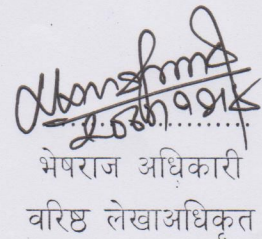 भेषराज अधिकारी
वरिष्ठ लेखाअधिकृत